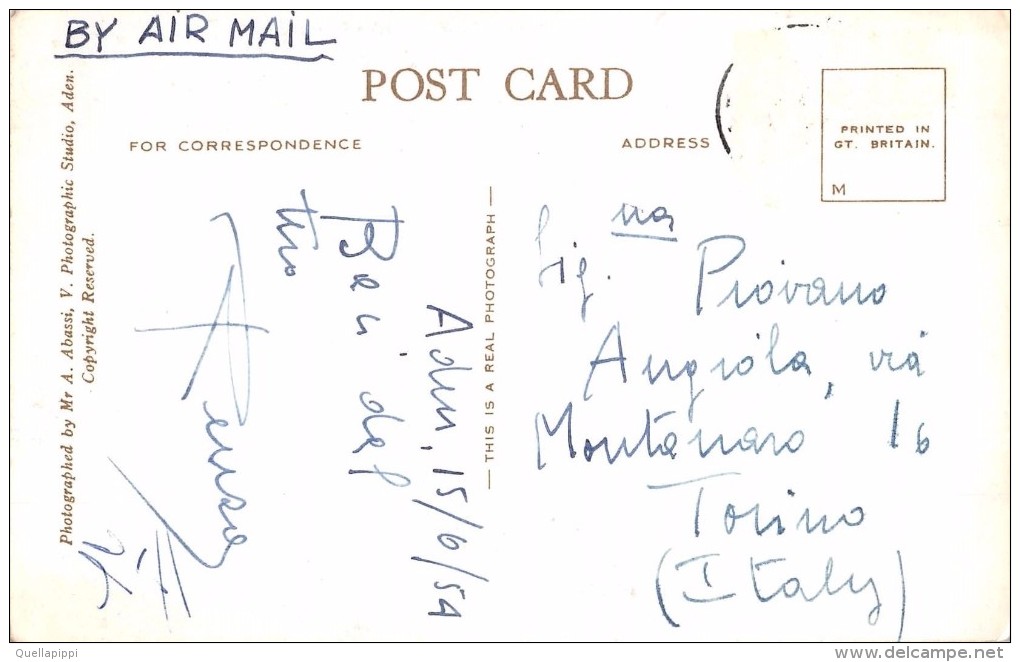 BY AIR MAIL
POST CARD
FOR CORRESPONDENCE
ADDRESS
PRINTED IN
GT. BRITAIN.
M
Photographed by Mr A. Abassi, V. Photographic Studio, Aden.
Copyright Reserved.
— THIS IS A REAL PHOTOGRAPH —
Aden, 15/6/54
Baci dal
tuo
Sig.na
Piovano
Angiola, via
Montanaro 16
Torino
(Italy)
Quellapippi
delcampe.net